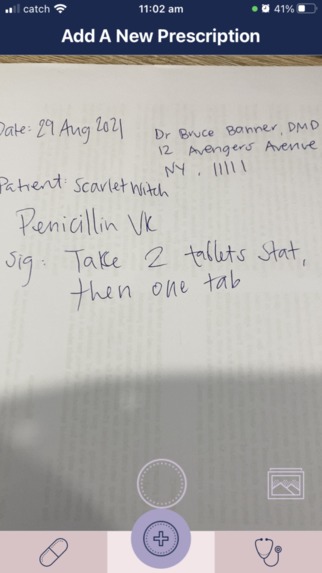 catch 11:02 am 41%
Add A New Prescription
Date: 29 Aug 2021
Dr Bruce Banner, DMD
12 Avengers Avenue
NY, 11111
Patient: Scarlet Witch
Penicillin VK
Sig: Take 2 tablets stat,
then one tab